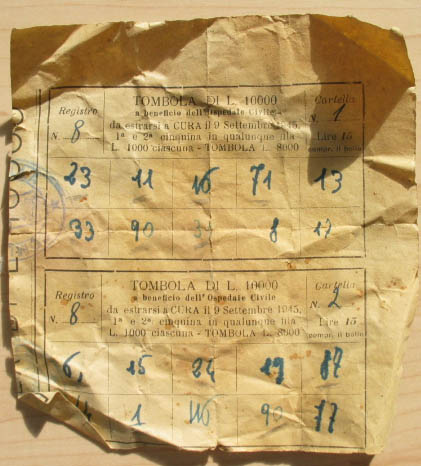 Registro
N. 8
TOMBOLA DI L. 10000
a beneficio dell'Ospedale Civile
da estrarsi a CURA il 9 Settembre 1945,
1ª e 2ª cinquina in qualunque fila
L. 1000 ciascuna - TOMBOLA L. 8000
Cartella
N. 1
Lire 15
compr. il bollo
23 11 16 71 13
33 90 8 17
Registro
N. 8
TOMBOLA DI L. 10000
a beneficio dell'Ospedale Civile
da estrarsi a CURA il 9 Settembre 1945,
1ª e 2ª cinquina in qualunque fila
L. 1000 ciascuna - TOMBOLA L. 8000
Cartella
N. 2
Lire 15
compr. il bollo
6, 15 24 19 87
1 46 90 77